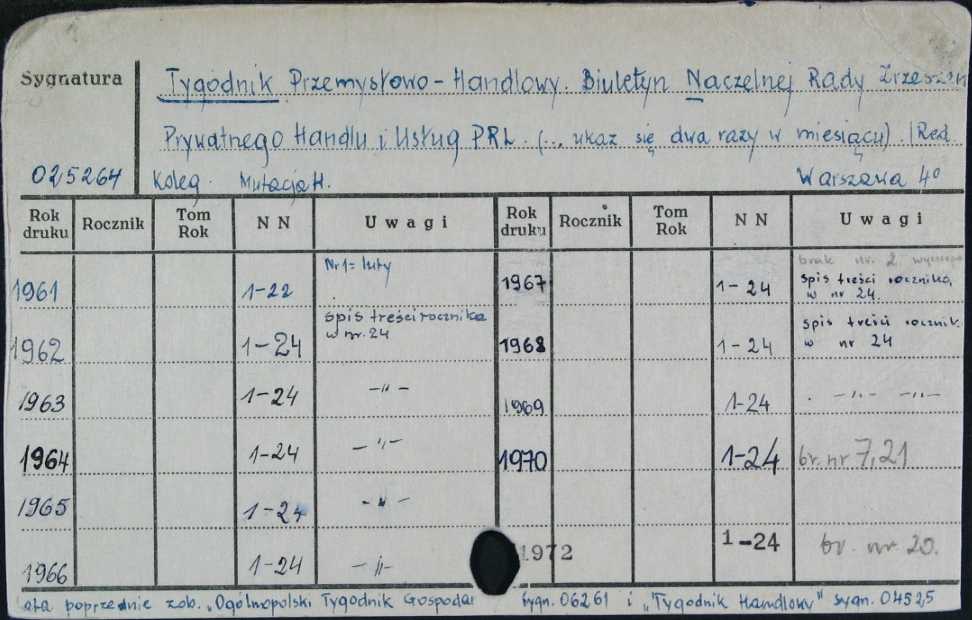 Sygnatura
Tygodnik Przemysłowo-Handlowy. Biuletyn Naczelnej Rady Zrzeszeń
Prywatnego Handlu i Usług PRL. (... ukaz się dwa razy w miesiącu). /Red.
025264 Koleg. Mutacja H. Warszawa 4°
Rok druku Rocznik Tom Rok NN Uwagi Rok druku Rocznik Tom Rok NN Uwagi
1961 1-22 Nr 1= luty
1962 1-24 spis treści rocznika w nr. 24
1963 1-24 -"-
1964 1-24 -"-
1965 1-24 -"-
1966 1-24 -"-
1967 1-24 brak nr. 2
spis treści rocznika w nr 24.
1968 1-24 spis treści rocznik. w nr 24
1969 1-24 -"- -"-
1970 1-24 br. nr 7,21
1972 1-24 br. nr. 20.
lata poprzednie zob. "Ogólnopolski Tygodnik Gospodar sygn. 06261 i "Tygodnik Handlowy" sygn. 04525